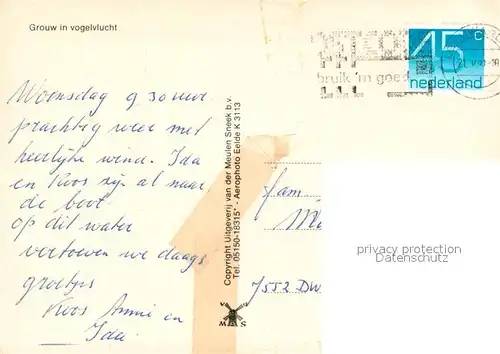 Grouw in vogelvlucht
Woensdag 9 30 uur.
prachtig weer met
heerlijke wind. Ida
en Koos zijn al naar
de boot.
op dit water
vertoeven we daags
groetjes
Koos Annie en
Ida
Copyright Uitgeverij van der Meulen Sneek b.v.
Tel. 05150-18315* - Aerophoto Eelde K 3113
VMS
bruik 'm goe
45 c
nederland
fam.
7552 DW
privacy protection
Datenschutz